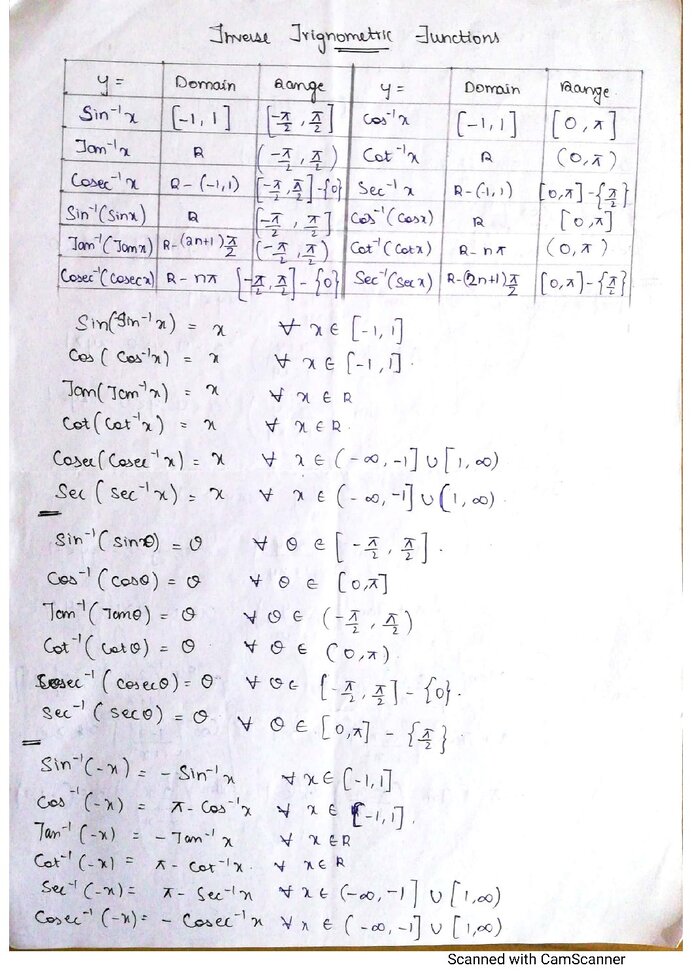 Inverse Trignometric Functions
y = Domain Range y = Domain Range
Sin⁻¹x [-1, 1] [-π/2, π/2] Cos⁻¹x [-1, 1] [0, π]
Tan⁻¹x R (-π/2, π/2) Cot⁻¹x R (0, π)
Cosec⁻¹x R - (-1, 1) [-π/2, π/2] - {0} Sec⁻¹x R - (-1, 1) [0, π] - {π/2}
Sin⁻¹(Sinx) R [-π/2, π/2] Cos⁻¹(Cosx) R [0, π]
Tan⁻¹(Tanx) R - (2n+1)π/2 (-π/2, π/2) Cot⁻¹(Cotx) R - nπ (0, π)
Cosec⁻¹(Cosecx) R - nπ [-π/2, π/2] - {0} Sec⁻¹(Secx) R - (2n+1)π/2 [0, π] - {π/2}
Sin(Sin⁻¹x) = x ∀ x ∈ [-1, 1]
Cos(Cos⁻¹x) = x ∀ x ∈ [-1, 1].
Tan(Tan⁻¹x) = x ∀ x ∈ R
Cot(Cot⁻¹x) = x ∀ x ∈ R.
Cosec(Cosec⁻¹x) = x ∀ x ∈ (-∞, -1] ∪ [1, ∞)
Sec(Sec⁻¹x) = x ∀ x ∈ (-∞, -1] ∪ [1, ∞).
Sin⁻¹(Sinθ) = θ ∀ θ ∈ [-π/2, π/2].
Cos⁻¹(Cosθ) = θ ∀ θ ∈ [0, π]
Tan⁻¹(Tanθ) = θ ∀ θ ∈ (-π/2, π/2)
Cot⁻¹(Cotθ) = θ ∀ θ ∈ (0, π).
Cosec⁻¹(Cosecθ) = θ ∀ θ ∈ [-π/2, π/2] - {0}.
Sec⁻¹(Secθ) = θ ∀ θ ∈ [0, π] - {π/2}
Sin⁻¹(-x) = - Sin⁻¹x ∀ x ∈ [-1, 1]
Cos⁻¹(-x) = π - Cos⁻¹x ∀ x ∈ [-1, 1].
Tan⁻¹(-x) = - Tan⁻¹x ∀ x ∈ R
Cot⁻¹(-x) = π - Cot⁻¹x. ∀ x ∈ R
Sec⁻¹(-x) = π - Sec⁻¹x ∀ x ∈ (-∞, -1] ∪ [1, ∞)
Cosec⁻¹(-x) = - Cosec⁻¹x ∀ x ∈ (-∞, -1] ∪ [1, ∞)
Scanned with CamScanner